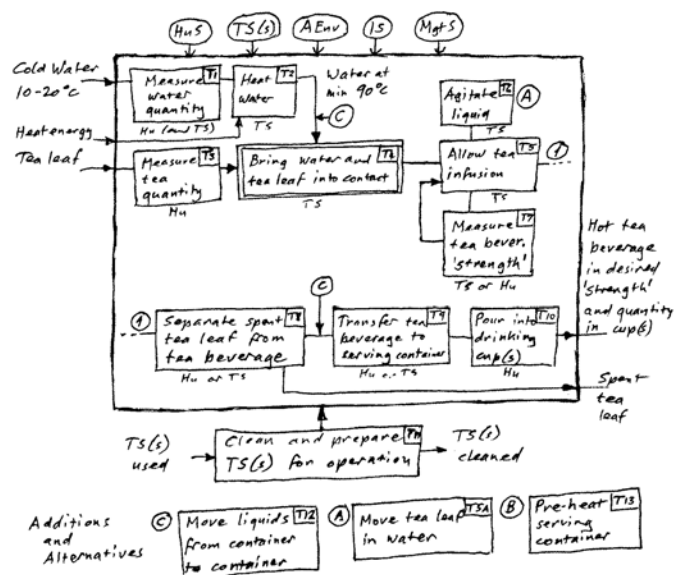 HuS TS(s) AEnv IS MgtS
Cold Water
10-20°C
Measure T1
water
quantity
Hu (and TS)
Heat T2
Water
TS
Water at
min 90°C
C
Agitate T6
liquid
TS
A
Heat energy
Tea leaf
Measure T3
tea
quantity
Hu
Bring Water and T4
tea leaf into contact
TS
Allow tea T5
infusion
TS
1
Measure T7
tea bever.
'strength'
TS or Hu
Hot tea
beverage
in desired
'strength'
and quantity
in cup(s)
1
Separate spent T8
tea leaf from
tea beverage
Hu or TS
C
Transfer tea T9
beverage to
serving container
Hu or TS
Pour into T10
drinking
cup(s)
Hu
Spent
tea
leaf
TS(s)
used
Clean and prepare T11
TS(s) for operation
TS(s)
cleaned
Additions
and
Alternatives
C
Move liquids T12
from container
to container
A
Move tea leaf T5A
in water
B
Pre-heat T13
serving
container